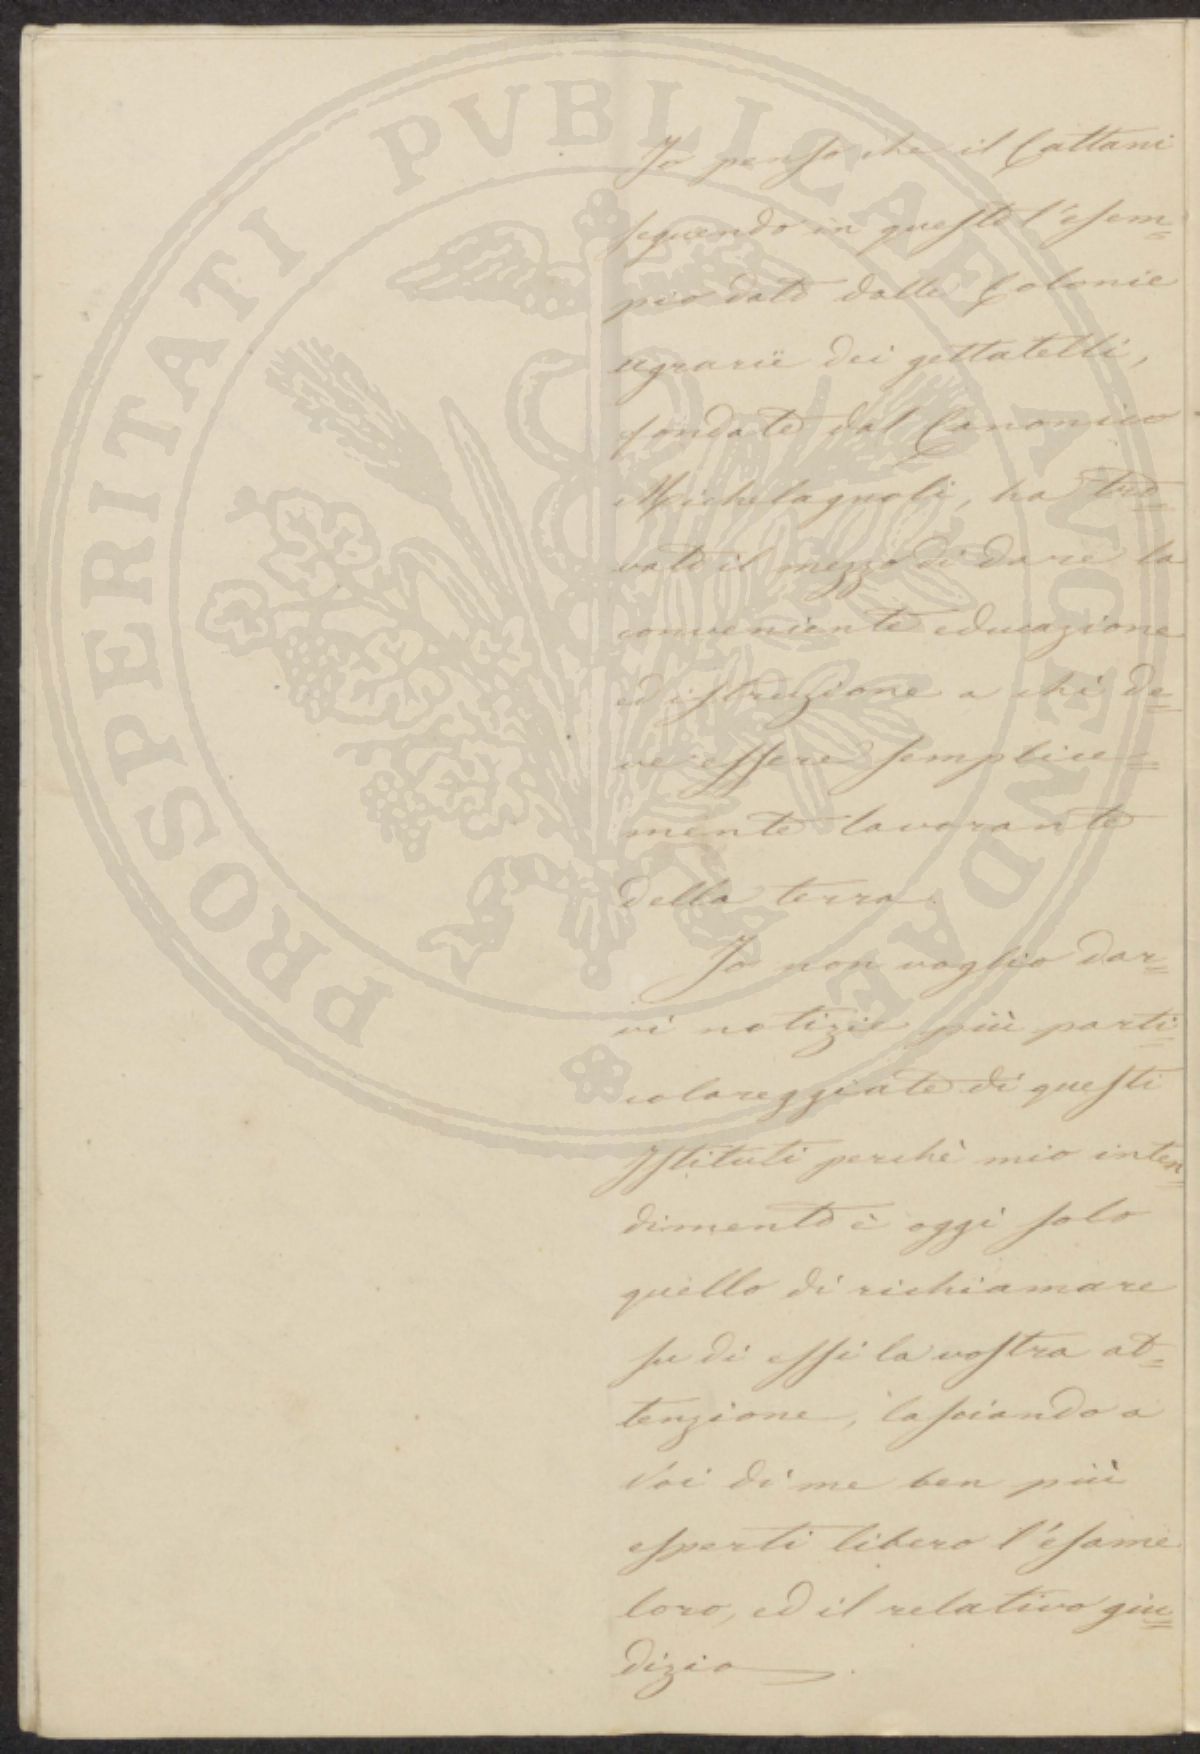 PROSPERITATI PVBLICAE AVGENDAE
Io penso che il Cattani
seguendo in questo l'esem=
pio dato dalle Colonie
agrarie dei gettatelli,
fondate dal Canonico
Michelagnoli, ha tro=
vato il mezzo di dare la
conveniente educazione
ed istruzione a chi de=
ve essere semplice=
mente lavorante
della terra.
Io non voglio dar=
vi notizie più parti=
colareggiate di questi
Istituti perchè mio inten=
dimento è oggi solo
quello di richiamare
su di essi la vostra at=
tenzione, lasciando a
Voi di me ben più
esperti libero l'esame
loro, ed il relativo giu=
dizio.